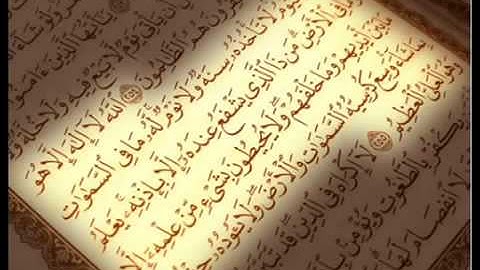 يَٰٓأَيُّهَا ٱلَّذِينَ ءَامَنُوٓا۟
يَأْتِىَ يَوْمٌ لَّا بَيْعٌ فِيهِ وَلَا خُلَّةٌ
هُمُ ٱلظَّٰلِمُونَ ٢٥٤ ٱللَّهُ لَآ إِلَٰهَ إِلَّا هُوَ
لَا تَأْخُذُهُۥ سِنَةٌ وَلَا نَوْمٌ لَّهُۥ مَا فِى ٱلسَّمَٰوَٰتِ
ٱلْأَرْضِ مَن ذَا ٱلَّذِى يَشْفَعُ عِندَهُۥٓ إِلَّا بِإِذْنِهِۦ يَعْلَمُ
أَيْدِيهِمْ وَمَا خَلْفَهُمْ وَلَا يُحِيطُونَ بِشَىْءٍ مِّنْ عِلْمِهِۦٓ إِلَّا
شَآءَ وَسِعَ كُرْسِيُّهُ ٱلسَّمَٰوَٰتِ وَٱلْأَرْضَ وَلَا يَـُٔودُهُۥ
وَهُوَ ٱلْعَلِىُّ ٱلْعَظِيمُ ٢٥٥ لَآ إِكْرَاهَ فِى ٱلدِّينِ قَد
يَكْفُرْ بِٱلطَّٰغُوتِ وَيُؤْمِنۢ
لَا ٱنفِصَامَ لَهَا